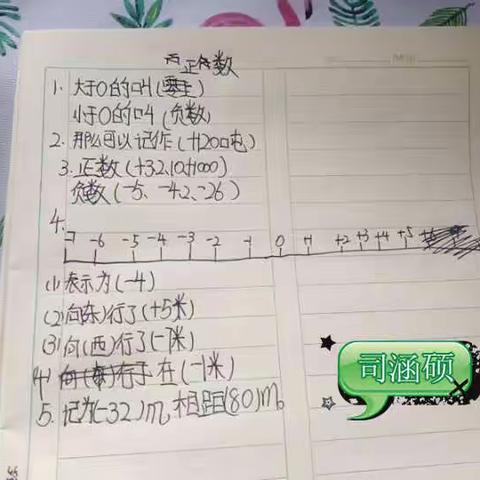 正负数
1. 大于0的叫(正数)
小于0的叫(负数)
2. 那么可以记作(+1200吨)
3. 正数(+32,10,+1000)
负数(-5、-42、-26)
4.
-7 -6 -5 -4 -3 -2 -1 0 +1 +2 +3 +4 +5
(1) 表示为(-4)
(2) 向(东)行了(+5米)
(3) 向(西)行了(-7米)
(4) 在(-1米)
5. 记为(-32)m, 相距(80)m。
司涵硕